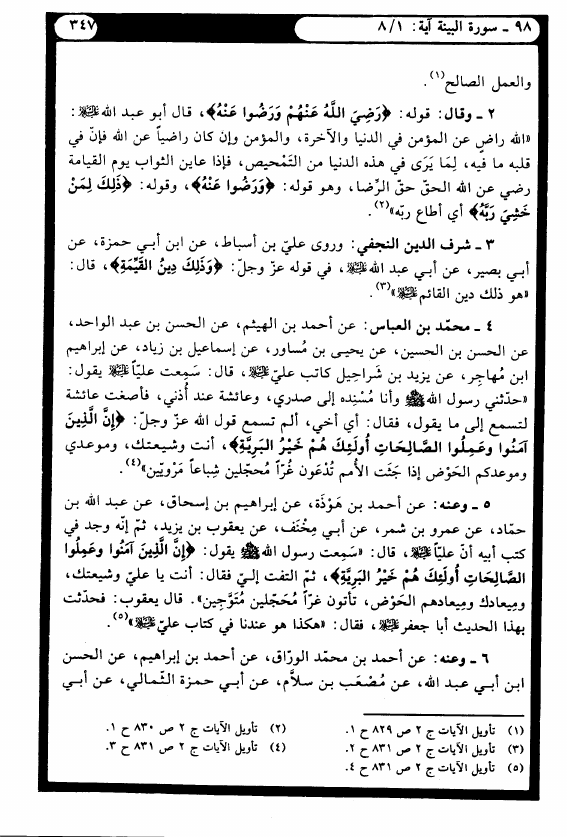 ٩٨ ـ سورة البينة آية: ٨/١
٣٤٧
والعمل الصالح(١).
٢ ـ وقال: قوله: ﴿رَضِيَ اللَّهُ عَنْهُمْ وَرَضُوا عَنْهُ﴾، قال أبو عبد الله ﷺ:
«الله راضٍ عن المؤمن في الدنيا والآخرة، والمؤمن وإن كان راضياً عن الله فإنّ في
قلبه ما فيه، لِمَا يَرَى في هذه الدنيا من التَمْحيص، فإذا عاين الثواب يوم القيامة
رضي عن الله الحقّ حقّ الرِّضا، وهو قوله: ﴿وَرَضُوا عَنْهُ﴾، وقوله: ﴿ذَلِكَ لِمَنْ
خَشِيَ رَبَّهُ﴾ أي أطاع ربّه»(٢).
٣ ـ شرف الدين النجفي: وروى عليّ بن أسباط، عن ابن أبي حمزة، عن
أبي بصير، عن أبي عبد الله ﷺ، في قوله عزّ وجلّ: ﴿وَذَلِكَ دِينُ القَيِّمَةِ﴾، قال:
«هو ذلك دين القائم ﷺ»(٣).
٤ ـ محمّد بن العباس: عن أحمد بن الهيثم، عن الحسن بن عبد الواحد،
عن الحسن بن الحسين، عن يحيى بن مُساور، عن إسماعيل بن زياد، عن إبراهيم
ابن مُهاجِر، عن يزيد بن شَراحيل كاتب عليّ ﷺ، قال: سَمِعت عليّاً ﷺ يقول:
«حدّثني رسول الله ﷺ وأنا مُسْنِده إلى صدري، وعائشة عند أُذني، فأصغت عائشة
لتسمع إلى ما يقول، فقال: أي أخي، ألم تسمع قول الله عزّ وجلّ: ﴿إِنَّ الَّذِينَ
آمَنُوا وَعَمِلُوا الصَّالِحَاتِ أُولَئِكَ هُمْ خَيْرُ البَرِيَّةِ﴾، أنت وشيعتك، وموعدي
وموعدكم الحَوْض إذا جَثَت الأُمم تُدْعَون غُرّاً مُحجّلين شِباعاً مَرْويين»(٤).
٥ ـ وعنه: عن أحمد بن هَوْذَة، عن إبراهيم بن إسحاق، عن عبد الله بن
حمّاد، عن عمرو بن شمر، عن أبي مِخْنَف، عن يعقوب بن يزيد، ثمّ إنّه وجد في
كتب أبيه أنّ عليّاً ﷺ، قال: «سَمِعت رسول الله ﷺ يقول: ﴿إِنَّ الَّذِينَ آمَنُوا وَعَمِلُوا
الصَّالِحَاتِ أُولَئِكَ هُمْ خَيْرُ البَرِيَّةِ﴾، ثمّ التفت إليّ فقال: أنت يا عليّ وشيعتك،
وميعادك وميعادهم الحَوْض، تأتون غرّاً مُحَجّلين مُتَوَّجين». قال يعقوب: فحدّثت
بهذا الحديث أبا جعفر ﷺ، فقال: «هكذا هو عندنا في كتاب عليّ ﷺ»(٥).
٦ ـ وعنه: عن أحمد بن محمّد الورّاق، عن أحمد بن إبراهيم، عن الحسن
ابن أبي عبد الله، عن مُصْعَب بن سلاَّم، عن أبي حمزة الثّمالي، عن أبي
(١) تأويل الآيات ج ٢ ص ٨٢٩ ح ١.
(٢) تأويل الآيات ج ٢ ص ٨٣٠ ح ١.
(٣) تأويل الآيات ج ٢ ص ٨٣١ ح ٢.
(٤) تأويل الآيات ج ٢ ص ٨٣١ ح ٣.
(٥) تأويل الآيات ج ٢ ص ٨٣١ ح ٤.